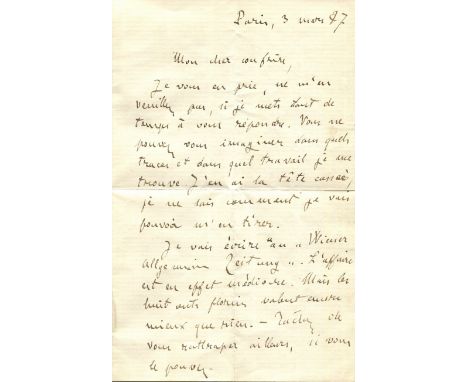 Paris, 3 mars 87
Mon cher confrère,
Je vous en prie, ne m'en
veuillez pas, si je mets tant de
temps à vous répondre. Vous ne
pouvez vous imaginer dans quels
tracas et dans quel travail je me
trouve. J'en ai la tête cassée,
je ne sais comment je vais
pouvoir m'en tirer.
Je vais écrire au « Wiener
Allgemein Zeitung ». L'affaire
est en effet médiocre. Mais les
huit cents florins valent encore
mieux que rien. — Tâchez de
vous rattraper ailleurs, si vous
le pouvez.